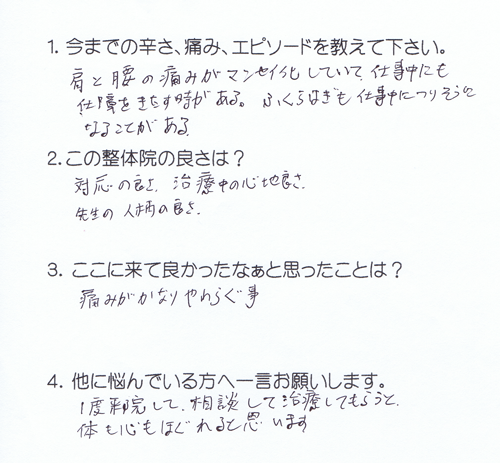 1. 今までの辛さ、痛み、エピソードを教えて下さい。
肩と腰の痛みがマンセイ化していて、仕事中にも
支障をきたす時がある。ふくらはぎも仕事中につりそうに
なることがある。
2. この整体院の良さは?
対応の良さ、治療中の心地良さ、
先生の人柄の良さ、
3. ここに来て良かったなぁと思ったことは?
痛みがかなりやわらぐ事
4. 他に悩んでいる方へ一言お願いします。
1度来院して、相談して治療してもらうと、
体も心もほぐれると思います